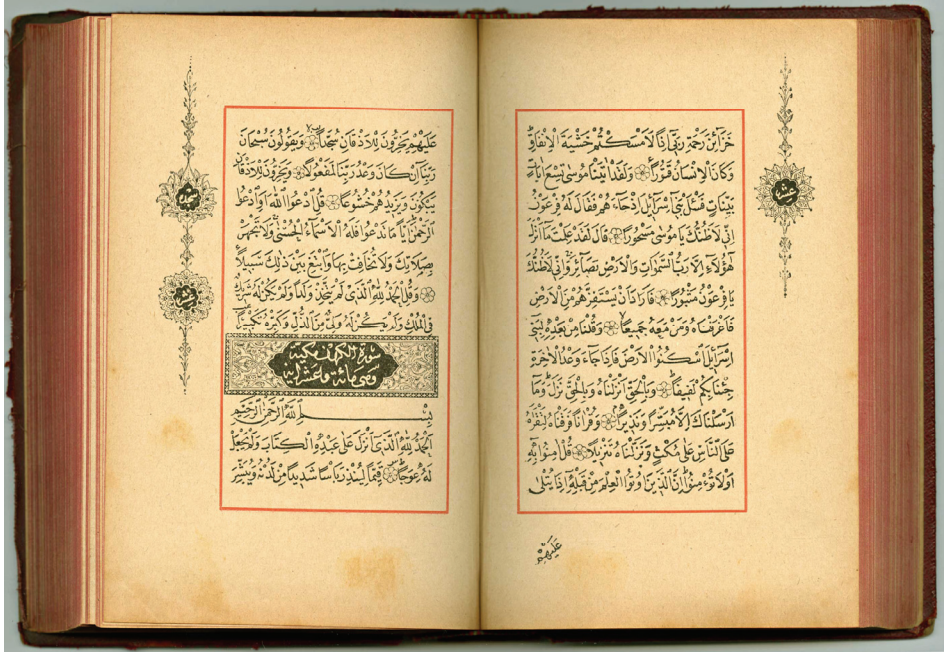 خَزَآئِنَ رَحْمَةِ رَبّ۪ٓي اِذًا لَاَمْسَكْتُمْ خَشْيَةَ الْاِنْفَاقِ
وَكَانَ الْاِنْسَانُ قَتُورًا وَلَقَدْ اٰتَيْنَا مُوسٰى تِسْعَ اٰيَاتٍ
بَيِّنَاتٍ فَسْـَٔلْ بَن۪ٓي اِسْرَآئ۪لَ اِذْ جَآءَهُمْ فَقَالَ لَهُ فِرْعَوْنُ
اِنّ۪ي لَاَظُنُّكَ يَا مُوسٰى مَسْحُورًا قَالَ لَقَدْ عَلِمْتَ مَٓا اَنْزَلَ
هٰٓؤُلَآءِ اِلَّا رَبُّ السَّمٰوَاتِ وَالْاَرْضِ بَصَآئِرَ وَاِنّ۪ي لَاَظُنُّكَ
يَا فِرْعَوْنُ مَثْبُورًا فَاَرَادَ اَنْ يَسْتَفِزَّهُمْ مِنَ الْاَرْضِ
فَاَغْرَقْنَاهُ وَمَنْ مَعَهُ جَم۪يعًا وَقُلْنَا مِنْ بَعْدِه۪ لِبَن۪ٓي
اِسْرَآئ۪لَ اسْكُنُوا الْاَرْضَ فَاِذَا جَآءَ وَعْدُ الْاٰخِرَةِ
جِئْنَا بِكُمْ لَف۪يفًا وَبِالْحَقِّ اَنْزَلْنَاهُ وَبِالْحَقِّ نَزَلَ وَمَٓا
اَرْسَلْنَاكَ اِلَّا مُبَشِّرًا وَنَذ۪يرًا وَقُرْاٰنًا فَرَقْنَاهُ لِتَقْرَاَهُ
عَلَى النَّاسِ عَلٰى مُكْثٍ وَنَزَّلْنَاهُ تَنْز۪يلًا قُلْ اٰمِنُوا بِه۪ٓ
اَوْ لَا تُؤْمِنُوا اِنَّ الَّذ۪ينَ اُوتُوا الْعِلْمَ مِنْ قَبْلِه۪ٓ اِذَا يُتْلٰى
عَلَيْهِمْ
عشر
عَلَيْهِمْ يَخِرُّونَ لِلْاَذْقَانِ سُجَّدًا وَيَقُولُونَ سُبْحَانَ
رَبِّنَٓا اِنْ كَانَ وَعْدُ رَبِّنَا لَمَفْعُولًا وَيَخِرُّونَ لِلْاَذْقَانِ
يَبْكُونَ وَيَز۪يدُهُمْ خُشُوعًا قُلِ ادْعُوا اللّٰهَ اَوِ ادْعُوا
الرَّحْمٰنَ اَيًّا مَا تَدْعُوا فَلَهُ الْاَسْمَآءُ الْحُسْنٰى وَلَا تَجْهَرْ
بِصَلَاتِكَ وَلَا تُخَافِتْ بِهَا وَابْتَغِ بَيْنَ ذٰلِكَ سَب۪يلًا
وَقُلِ الْحَمْدُ لِلّٰهِ الَّذ۪ي لَمْ يَتَّخِذْ وَلَدًا وَلَمْ يَكُنْ لَهُ شَر۪يكٌ
فِي الْمُلْكِ وَلَمْ يَكُنْ لَهُ وَلِيٌّ مِنَ الذُّلِّ وَكَبِّرْهُ تَكْب۪يرًا
سورة الكهف مكية
وهى مائة وعشر اية
بِسْمِ اللّٰهِ الرَّحْمٰنِ الرَّح۪يمِ
اَلْحَمْدُ لِلّٰهِ الَّذ۪ٓي اَنْزَلَ عَلٰى عَبْدِهِ الْكِتَابَ وَلَمْ يَجْعَلْ
لَهُ عِوَجًا قَيِّمًا لِيُنْذِرَ بَاْسًا شَد۪يدًا مِنْ لَدُنْهُ وَيُبَشِّرَ
سجده
عشر